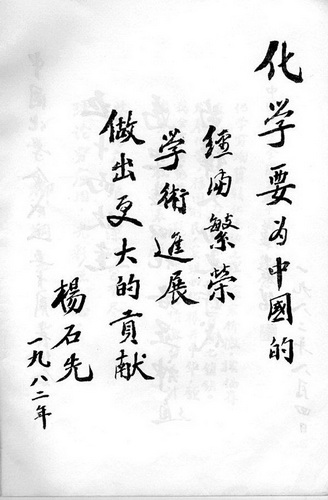 化学要为中國的
經济繁榮
学術進展
做出更大的貢献
楊石先
一九八二年